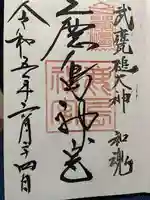 武甕槌大神 和魂
鹿島神宮
令和五年六月二十四日